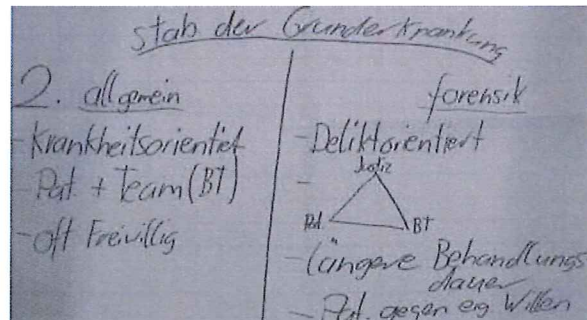 stab der Grunderkrankung
2. allgemein
- Krankheitsorientiet
- Pat. + Team (BT)
- oft Freiwillig
forensik
- Deliktorientiert
- Justiz
Pat. BT
- längere Behandlungs
dauer
- Pat. gegen eig Willen